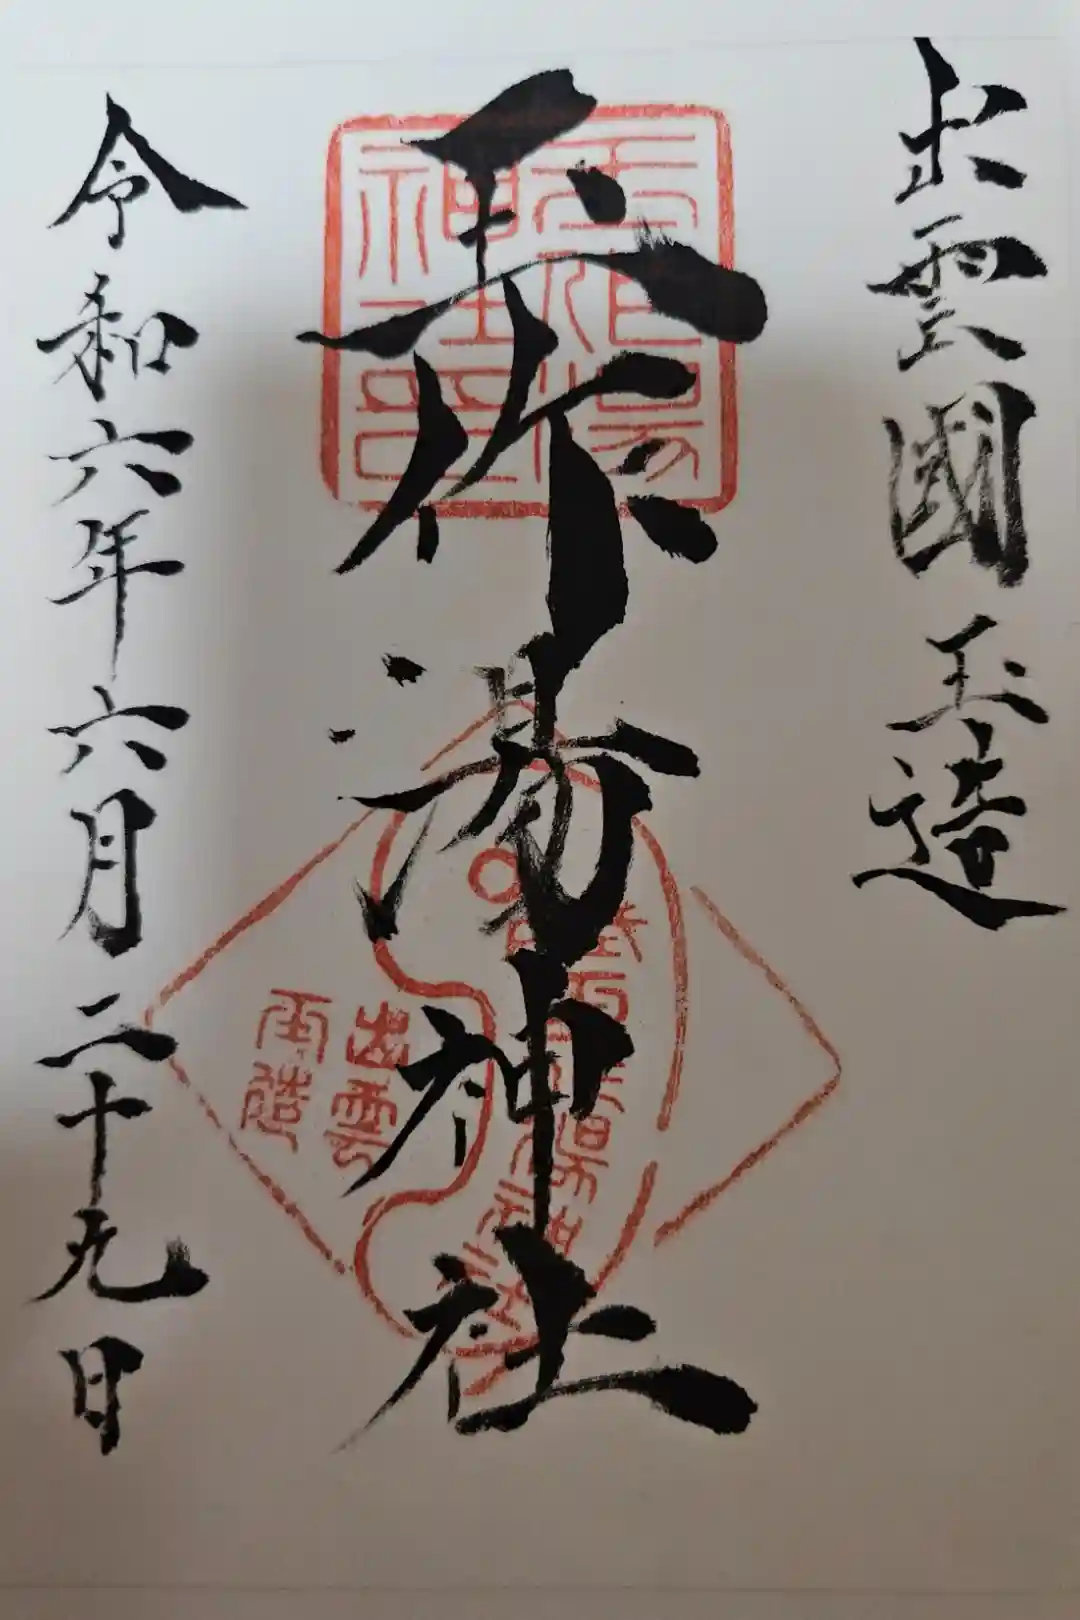 出雲國玉造
玉作湯神社
令和六年六月二十九日
玉作湯
神社印
出雲
玉造